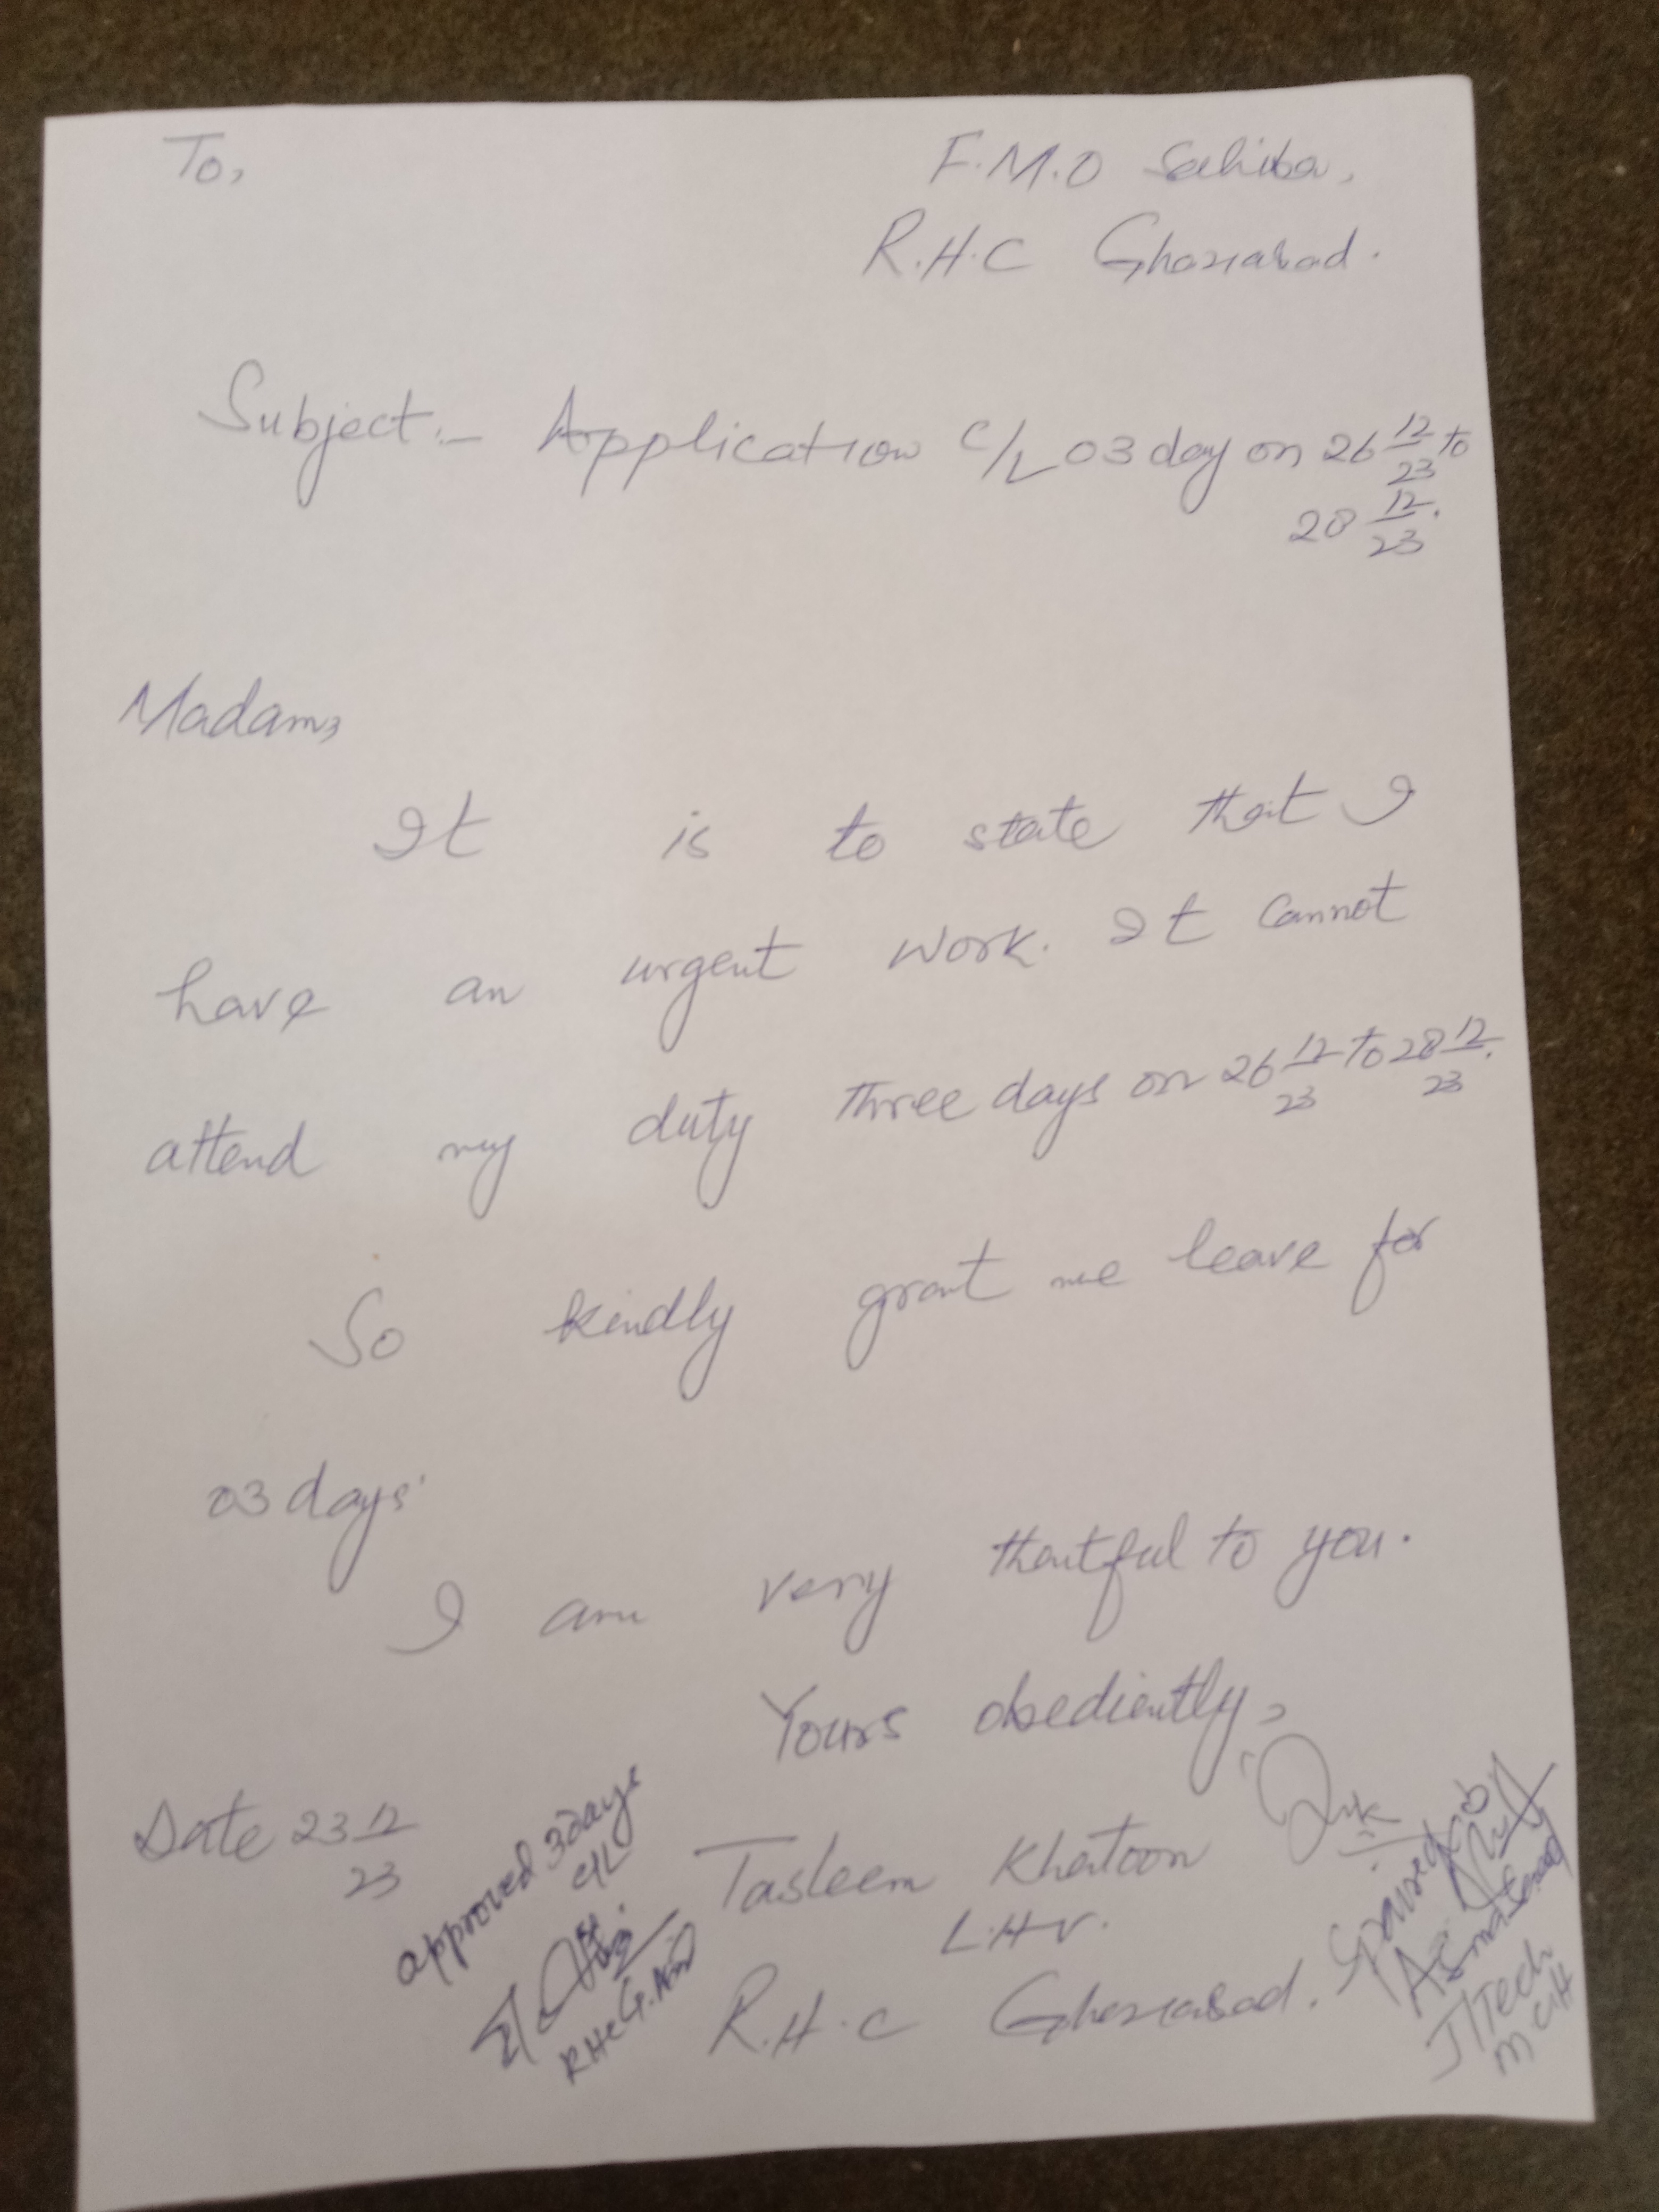 To,
F.M.O Sahiba,
R.H.C Ghaziabad.
Subject:- Application C/L 03 day on 26 12/23 to
28 12/23.
Madam,
It is to state that I
have an urgent work. It cannot
attend my duty three days on 26 12/23 to 28 12/23.
So kindly grant me leave for
03 days.
I am very thantful to you.
Yours obediently,
Date 23 12/23
Tasleem Khatoon
L.H.V.
R.H.C Ghaziabad.
approved 3 days
C/L
RHC G.Abad
Spaired by
Asmat
J/Tech
MCH